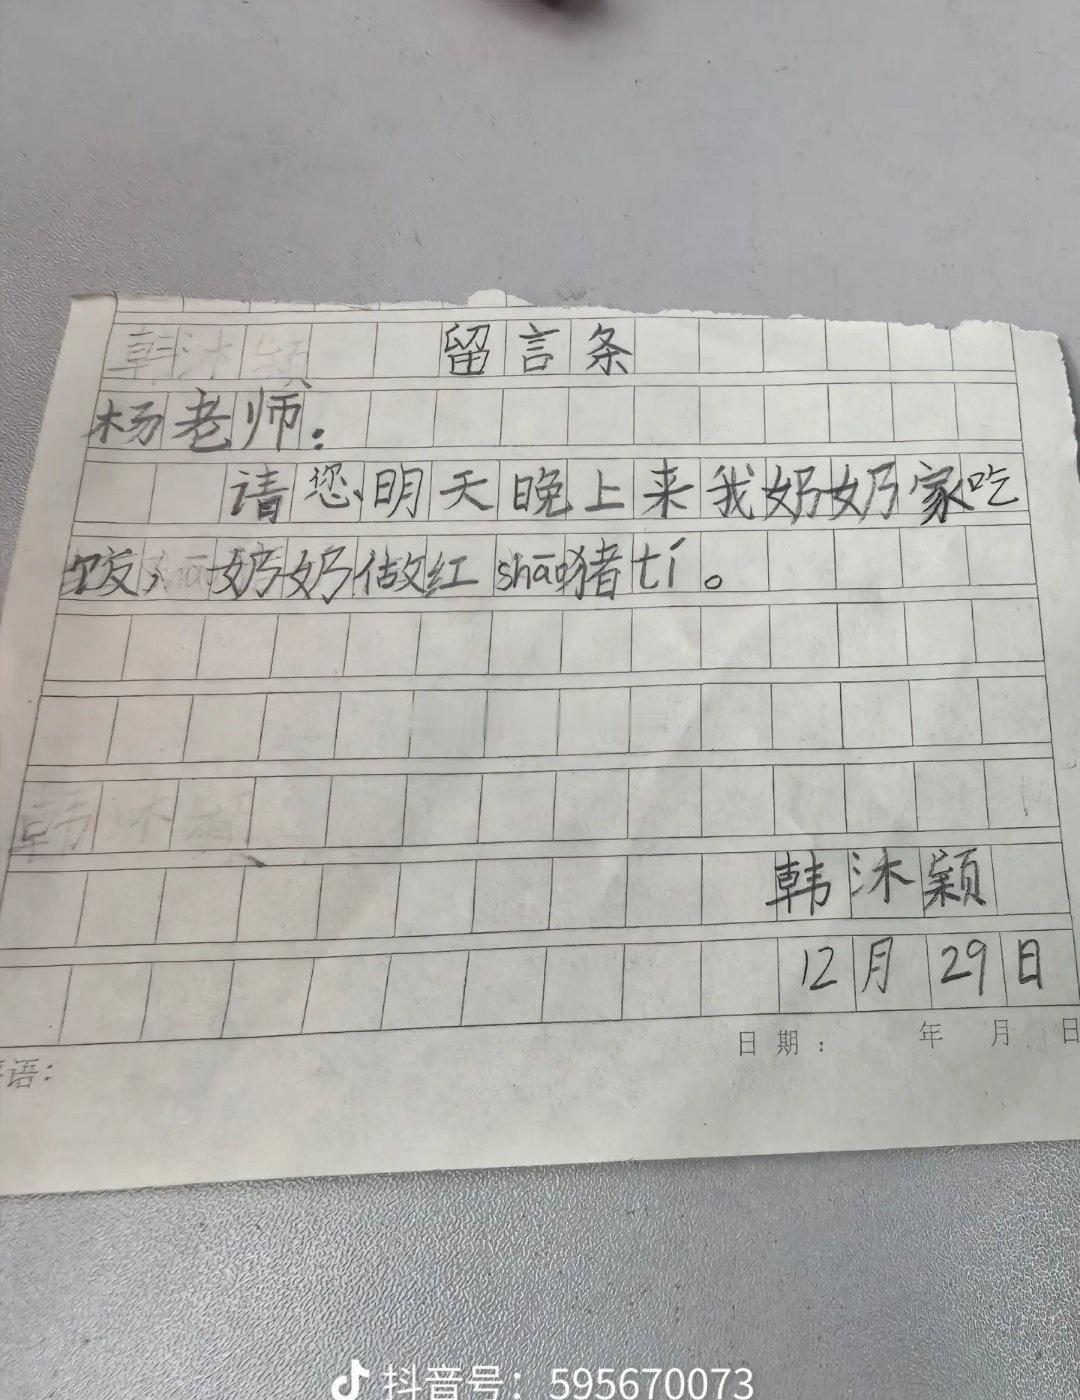 韩沐颖 留言条
杨老师：
请您明天晚上来我奶奶家吃
饭，奶奶做红shāo猪tí。
韩沐颖
韩沐颖
12月29日
日期： 年 月 日
语：
抖音号：595670073